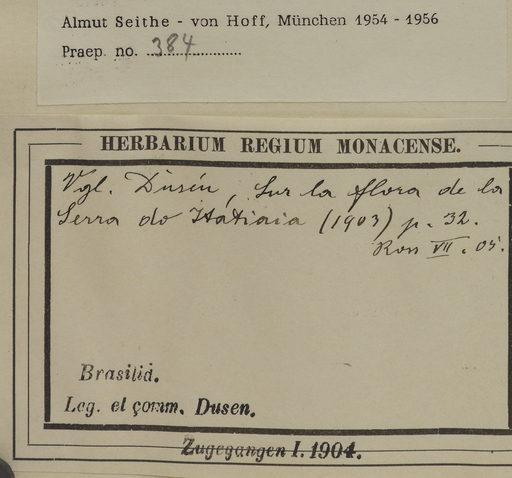 Almut Seithe - von Hoff, München 1954 - 1956
Praep. no. 384
HERBARIUM REGIUM MONACENSE.
Vgl. Dusén, Sur la flora de la
Serra do Itatiaia (1903) p. 32.
Ross VII. 05.
Brasilia.
Leg. et comm. Dusen.
Zugegangen I. 1904.